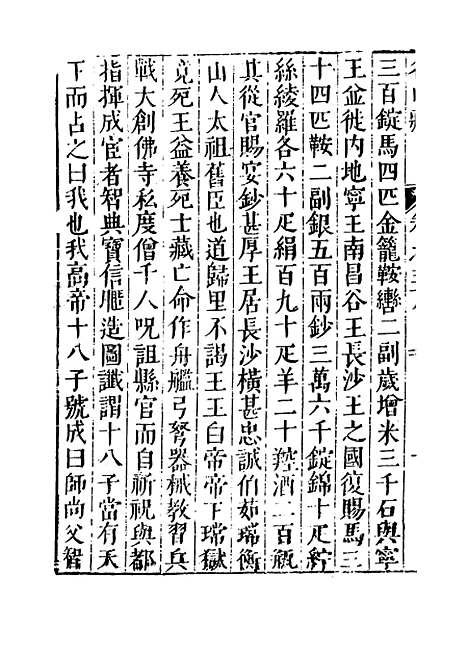 三百錠馬四匹金籠鞍轡二副歲增米三千石與寧
王並徙內地寧王南昌谷王長沙王之國復賜馬三
十四匹鞍二副銀五百兩鈔三萬六千錠錦十疋紵
絲綾羅各六十疋絹百九十疋羊二十羫酒二百瓶
其從官賜宴鈔甚厚王居長沙橫甚忠誠伯茹瑺衡
山人太祖舊臣也道歸里不謁王王白帝帝下瑺獄
竟死王益養死士藏亡命作舟艦弓弩器械教習兵
戰大創佛寺私度僧千人呪詛縣官而自祈祝與都
指揮成宦者智典寶信曁造圖讖謂十八子當有天
下而占之曰我也我高帝十八子號成曰師尚父智